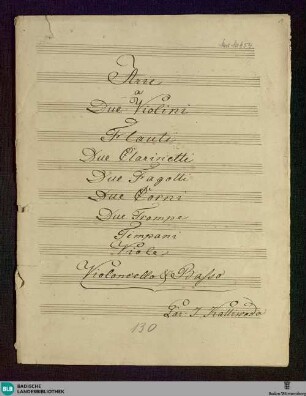 Arie
a
Due Violini
Flauti
Due Clarinetti
Due Fagotti
Due Corni
Due Trompe
Timpani
Viole
Violoncello & Basso
Par J. Kalliwoda
130
BLB BADISCHE
LANDESBIBLIOTHEK
Baden-Württemberg